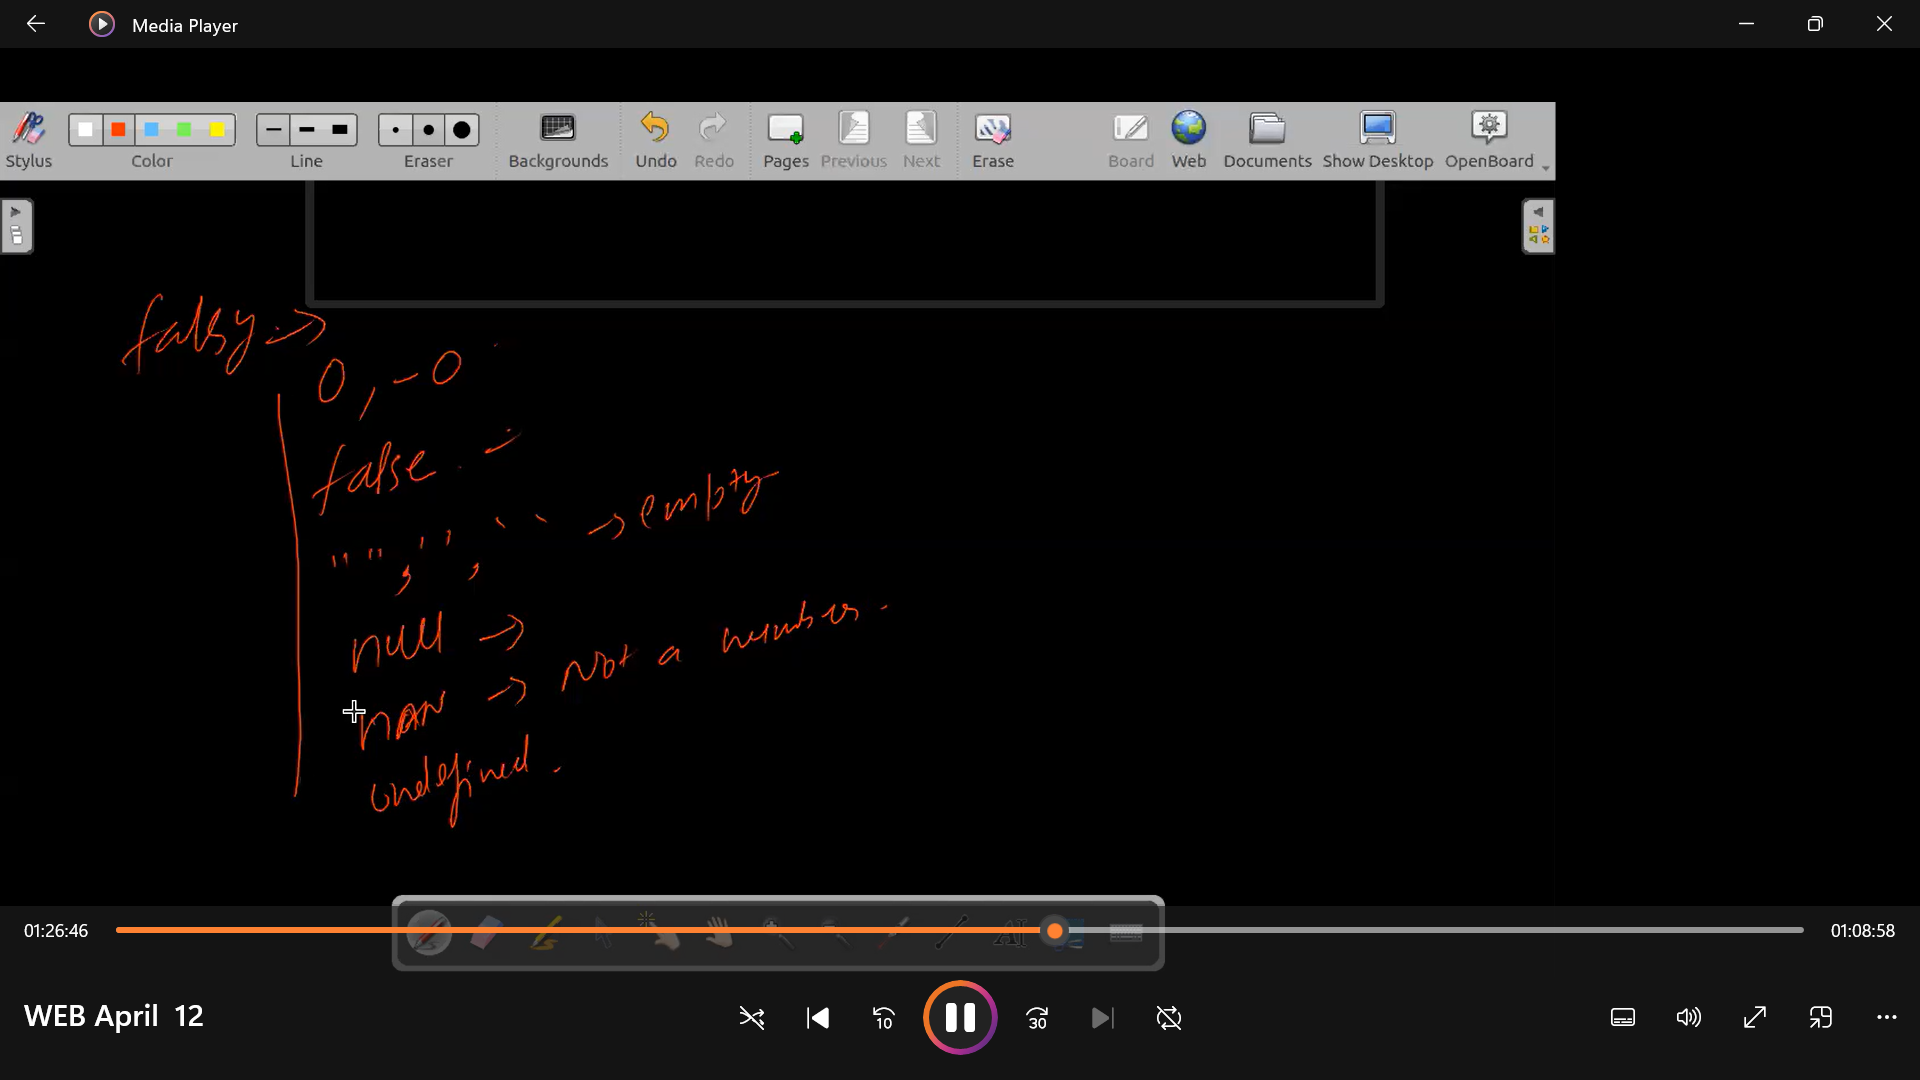 Media Player
Stylus Color Line Eraser Backgrounds Undo Redo Pages Previous Next Erase Board Web Documents Show Desktop OpenBoard
falsy →
0, -0
false.
" ", ' ', ` ` → empty
null →
NAN → Not a number.
undefined.
01:26:46 01:08:58
WEB April 12
10 30